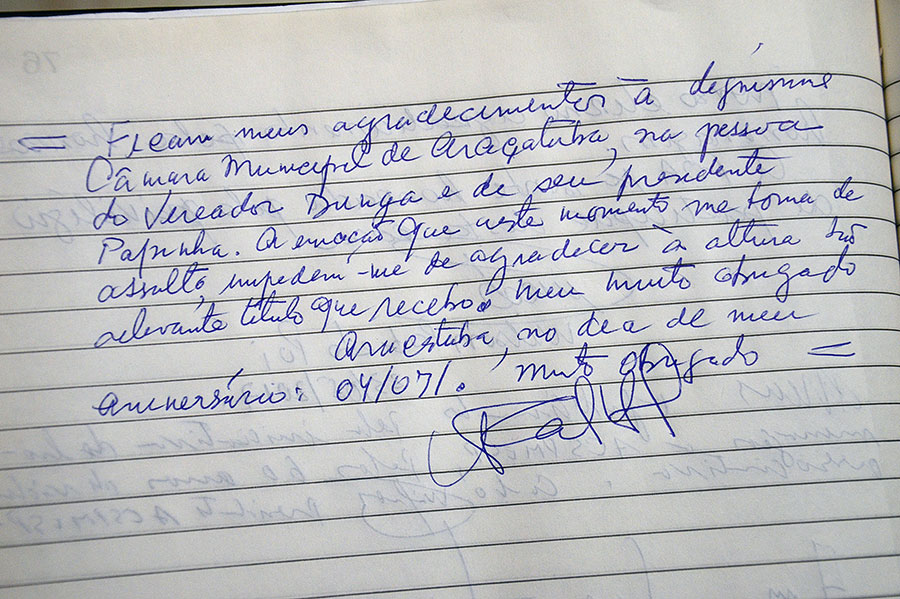 = Ficam meus agradecimentos à digníssima
Câmara Municipal de Araçatuba, na pessoa
do Vereador Dunga e de seu presidente
Papinha. A emoção que neste momento me toma de
assalto, impedem-me de agradecer à altura tão
relevante título que recebo. Meu muito obrigado
Araçatuba, no dia de meu
aniversário: 04/07/. Muito obrigado =